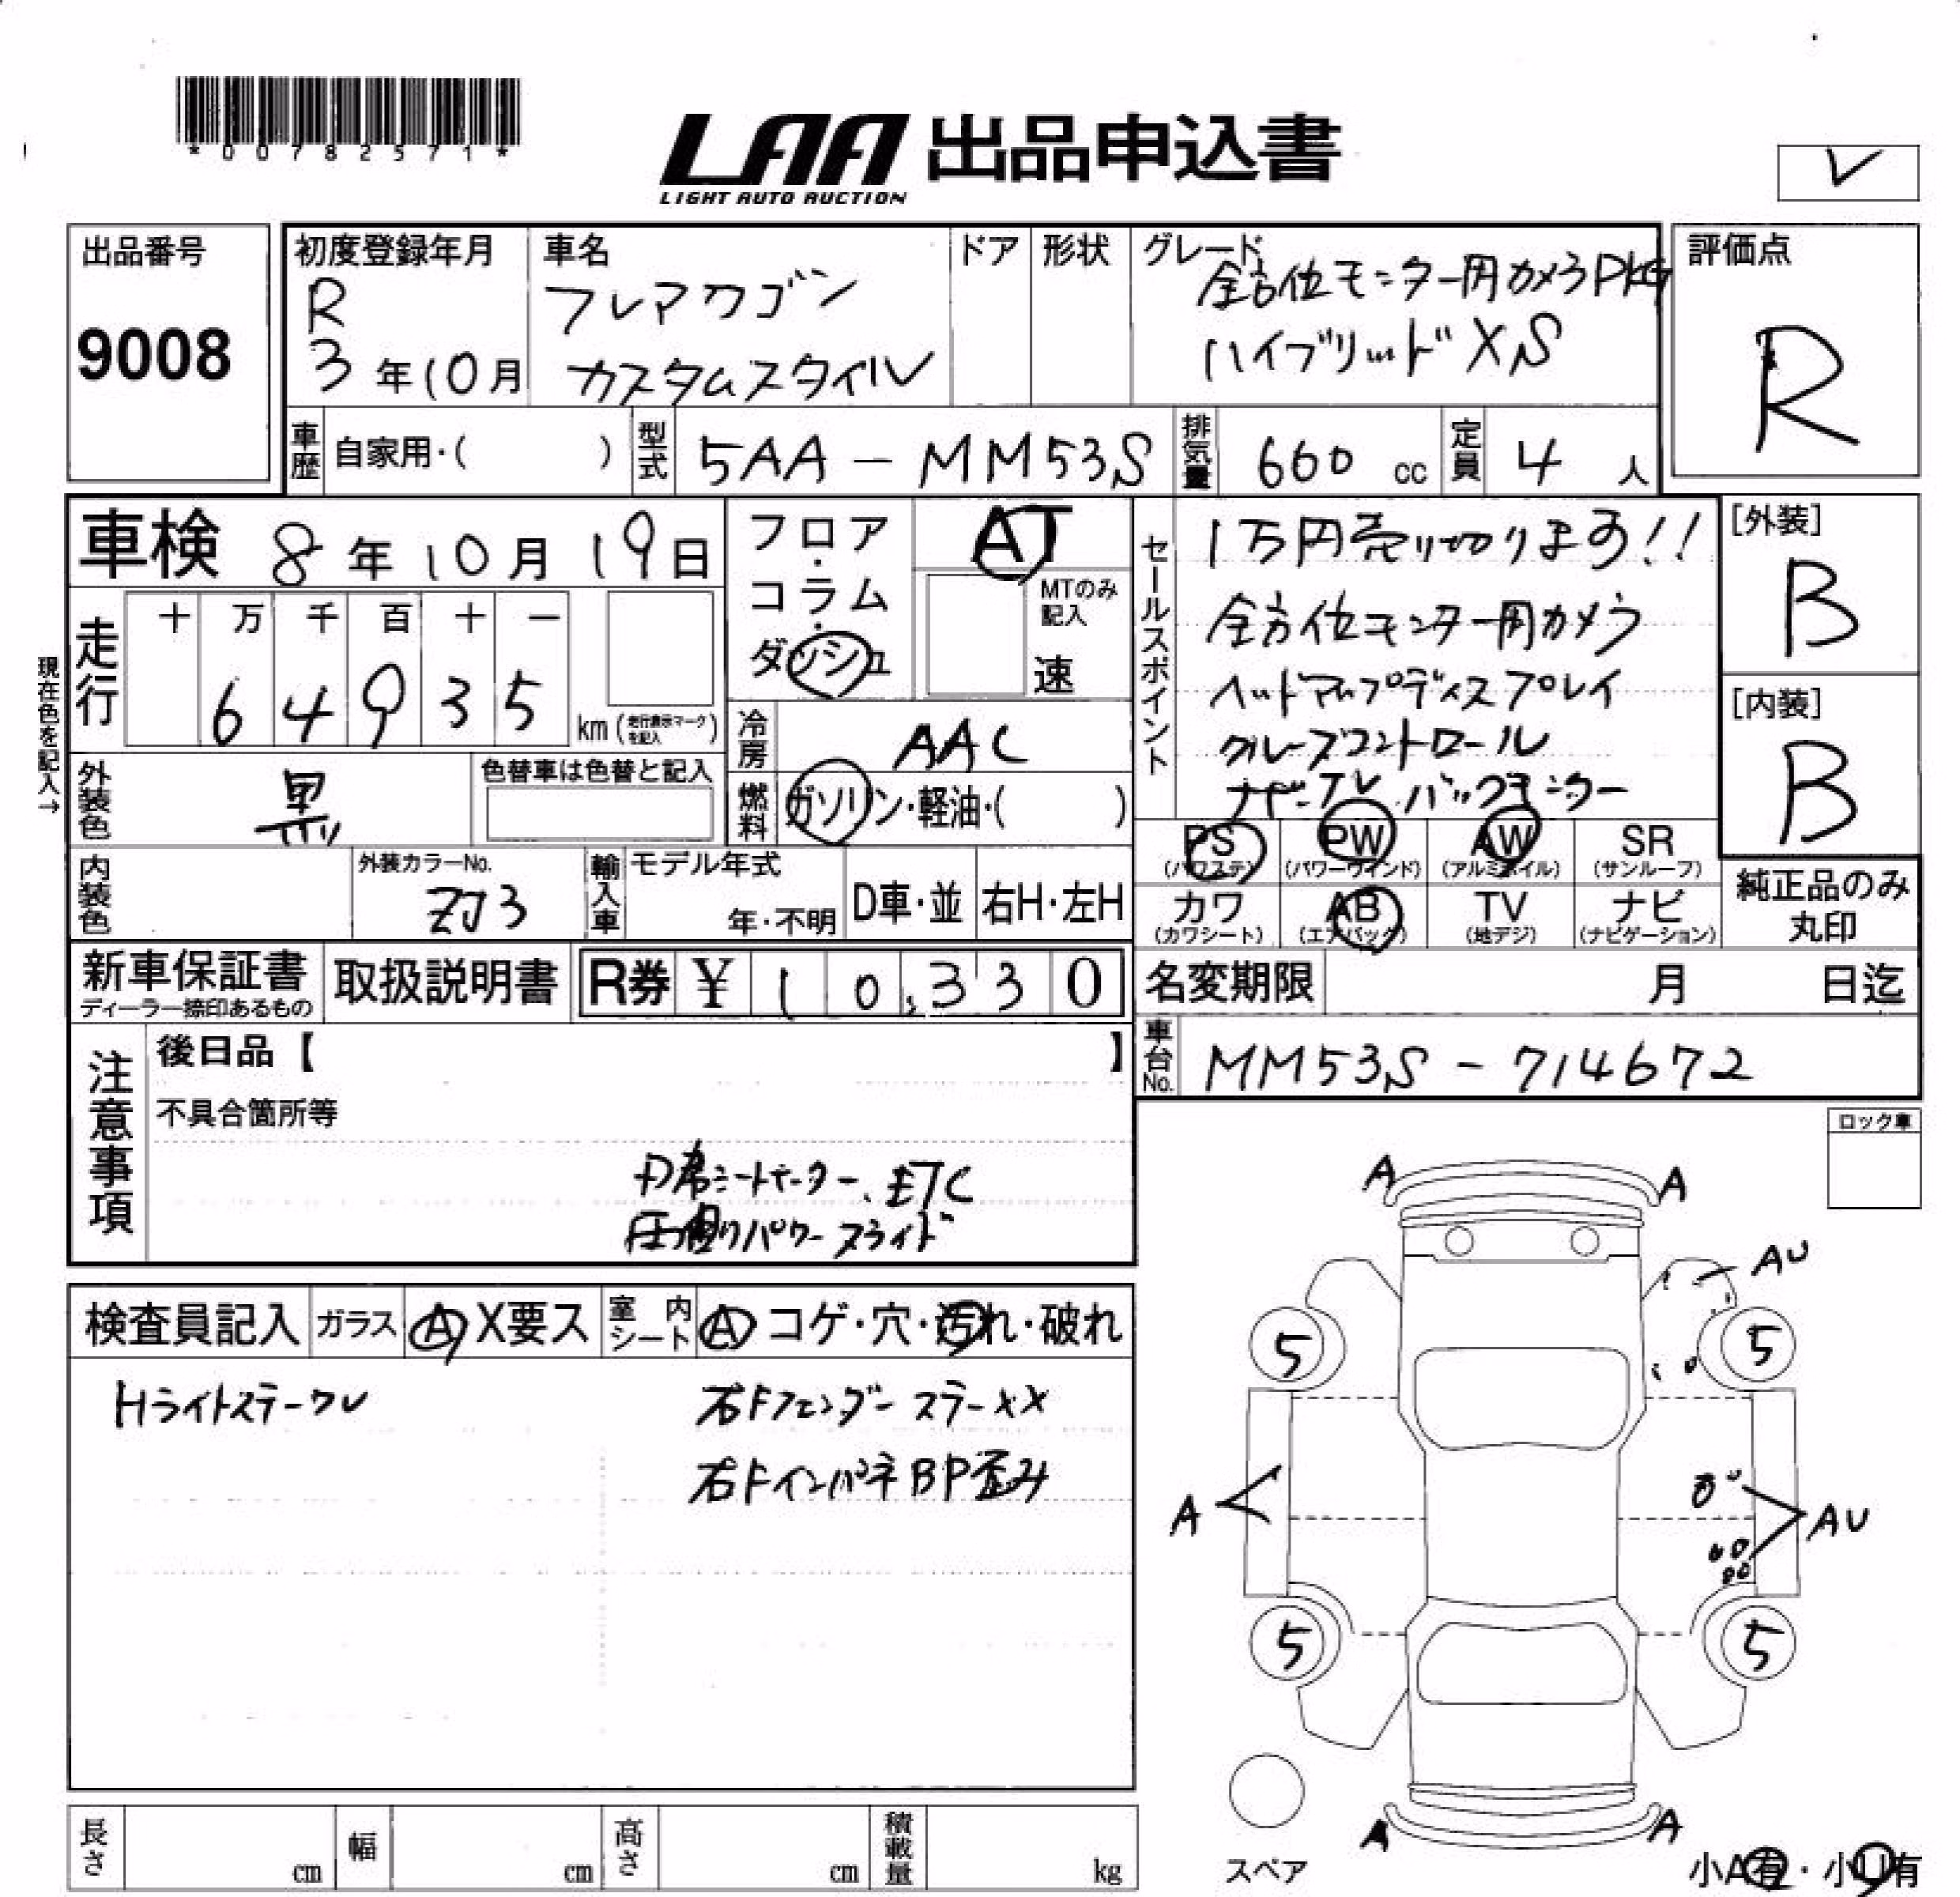 *00782571*
LAA 出品申込書
LIGHT AUTO AUCTION
レ
出品番号
9008
初度登録年月
R
3年10月
車名
フレアワゴン
カスタムスタイル
ドア
形状
グレード
全方位モニター用カメラPKG
ハイブリッドXS
評価点
R
車歴 自家用・( )
型式 5AA-MM53S
排気量 660 cc
定員 4 人
車検 8年10月19日
フロア・コラム・ダッシュ
AT
MTのみ記入
速
セールスポイント
1万円売り切ります!!
全方位モニター用カメラ
ヘッドアップディスプレイ
クルーズコントロール
ナビ TV バックモニター
[外装]
B
[内装]
B
現在色を記入→
走行
十 万 千 百 十 一
6 4 9 3 5
km(走行表示マークを記入)
冷房 AAC
燃料 ガソリン・軽油・( )
外装色 黒
色替車は色替と記入
PS (パワステ)
PW (パワーウインド)
AW (アルミホイル)
SR (サンルーフ)
カワ (カワシート)
AB (エアバック)
TV (地デジ)
ナビ (ナビゲーション)
純正品のみ
丸印
内装色
外装カラーNo.
ZJ3
輸入車
モデル年式
年・不明
D車・並
右H・左H
新車保証書
ディーラー捺印あるもの
取扱説明書
R券 ¥10,330
名変期限 月 日迄
車台No. MM53S-714672
注意事項
後日品【 】
不具合箇所等
D席シートヒーター、ETC
左側パワースライド
ロック車
検査員記入
ガラス A X要ス
室内シート A コゲ・穴・汚れ・破れ
HライトステークU
右Fフェンダー ステーXX
右FインパネBP歪み
A A
AU
5 5
A
AU
5 5
A A
スペア
小A有・小U有
長さ cm
幅 cm
高さ cm
積載量 kg